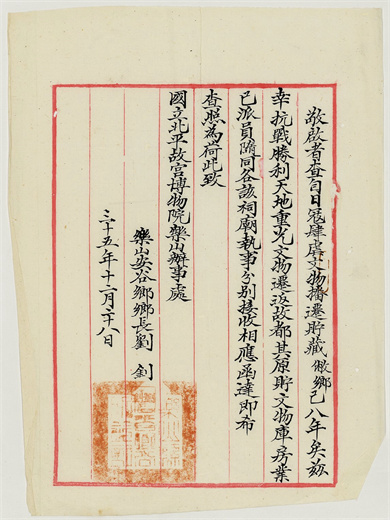 敬啟者查自日寇肆虐文物播遷貯藏敝鄉已八年矣茲
幸抗戰勝利天地重光文物還返故都其原貯文物庫房業
已派員隨同各該祠廟執事分別接收相應函達即希
查照為荷此致
國立北平故宮博物院樂山辦事處
樂山安谷鄉鄉長劉釗
三十五年十二月二十八日